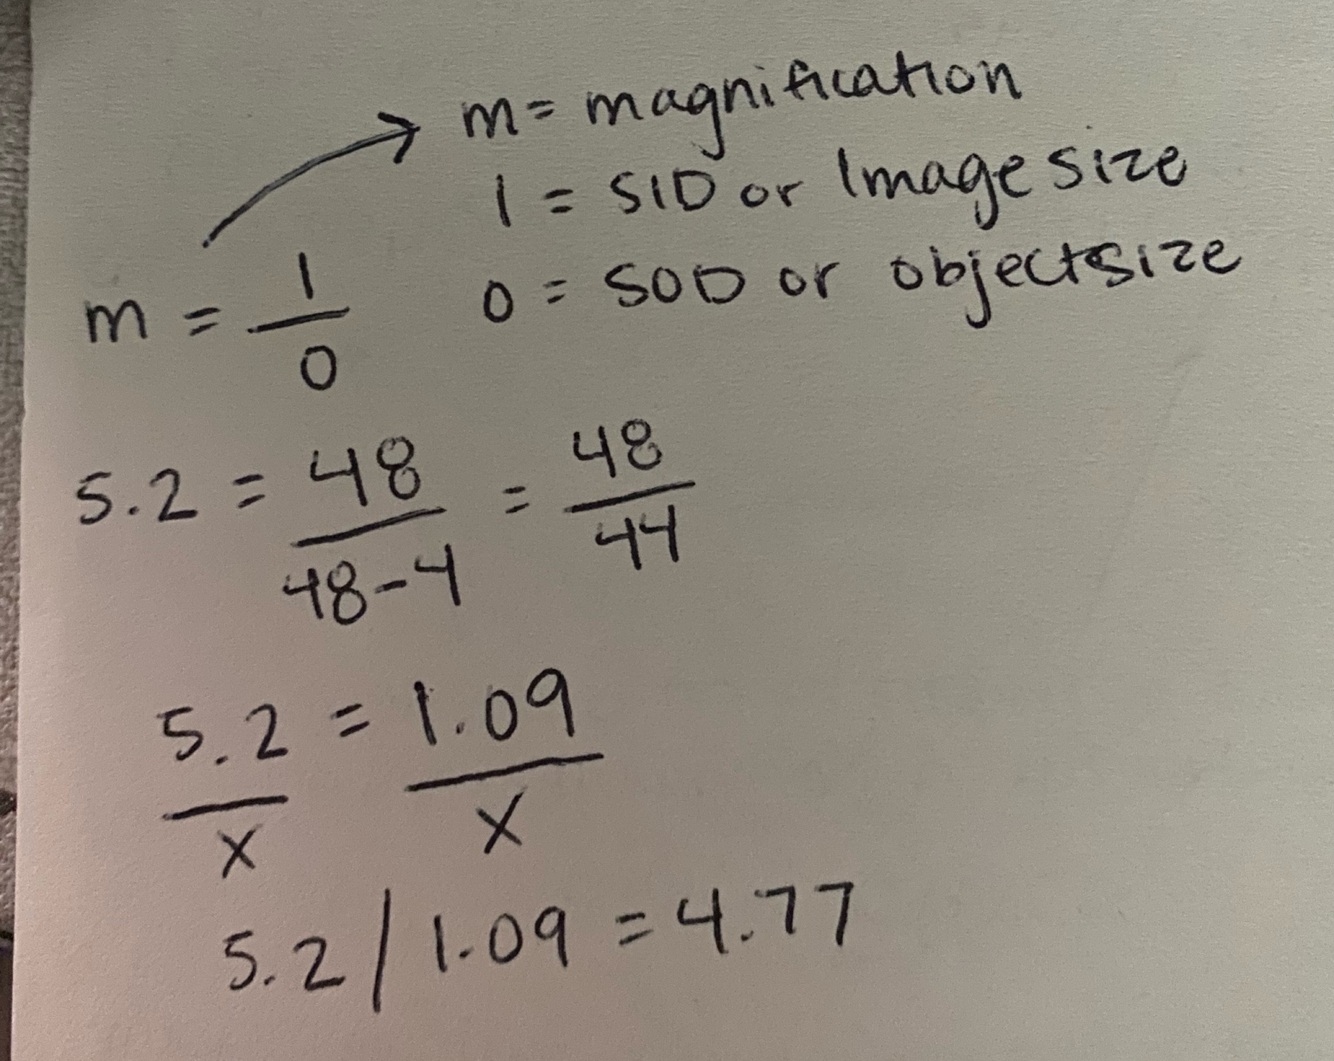 m= magnification
1 = SID or Image size
0 = SOD or objectsize
m = 1/0
5.2 = 48/48-4 = 48/44
5.2/x = 1.09/x
5.2 / 1.09 = 4.77